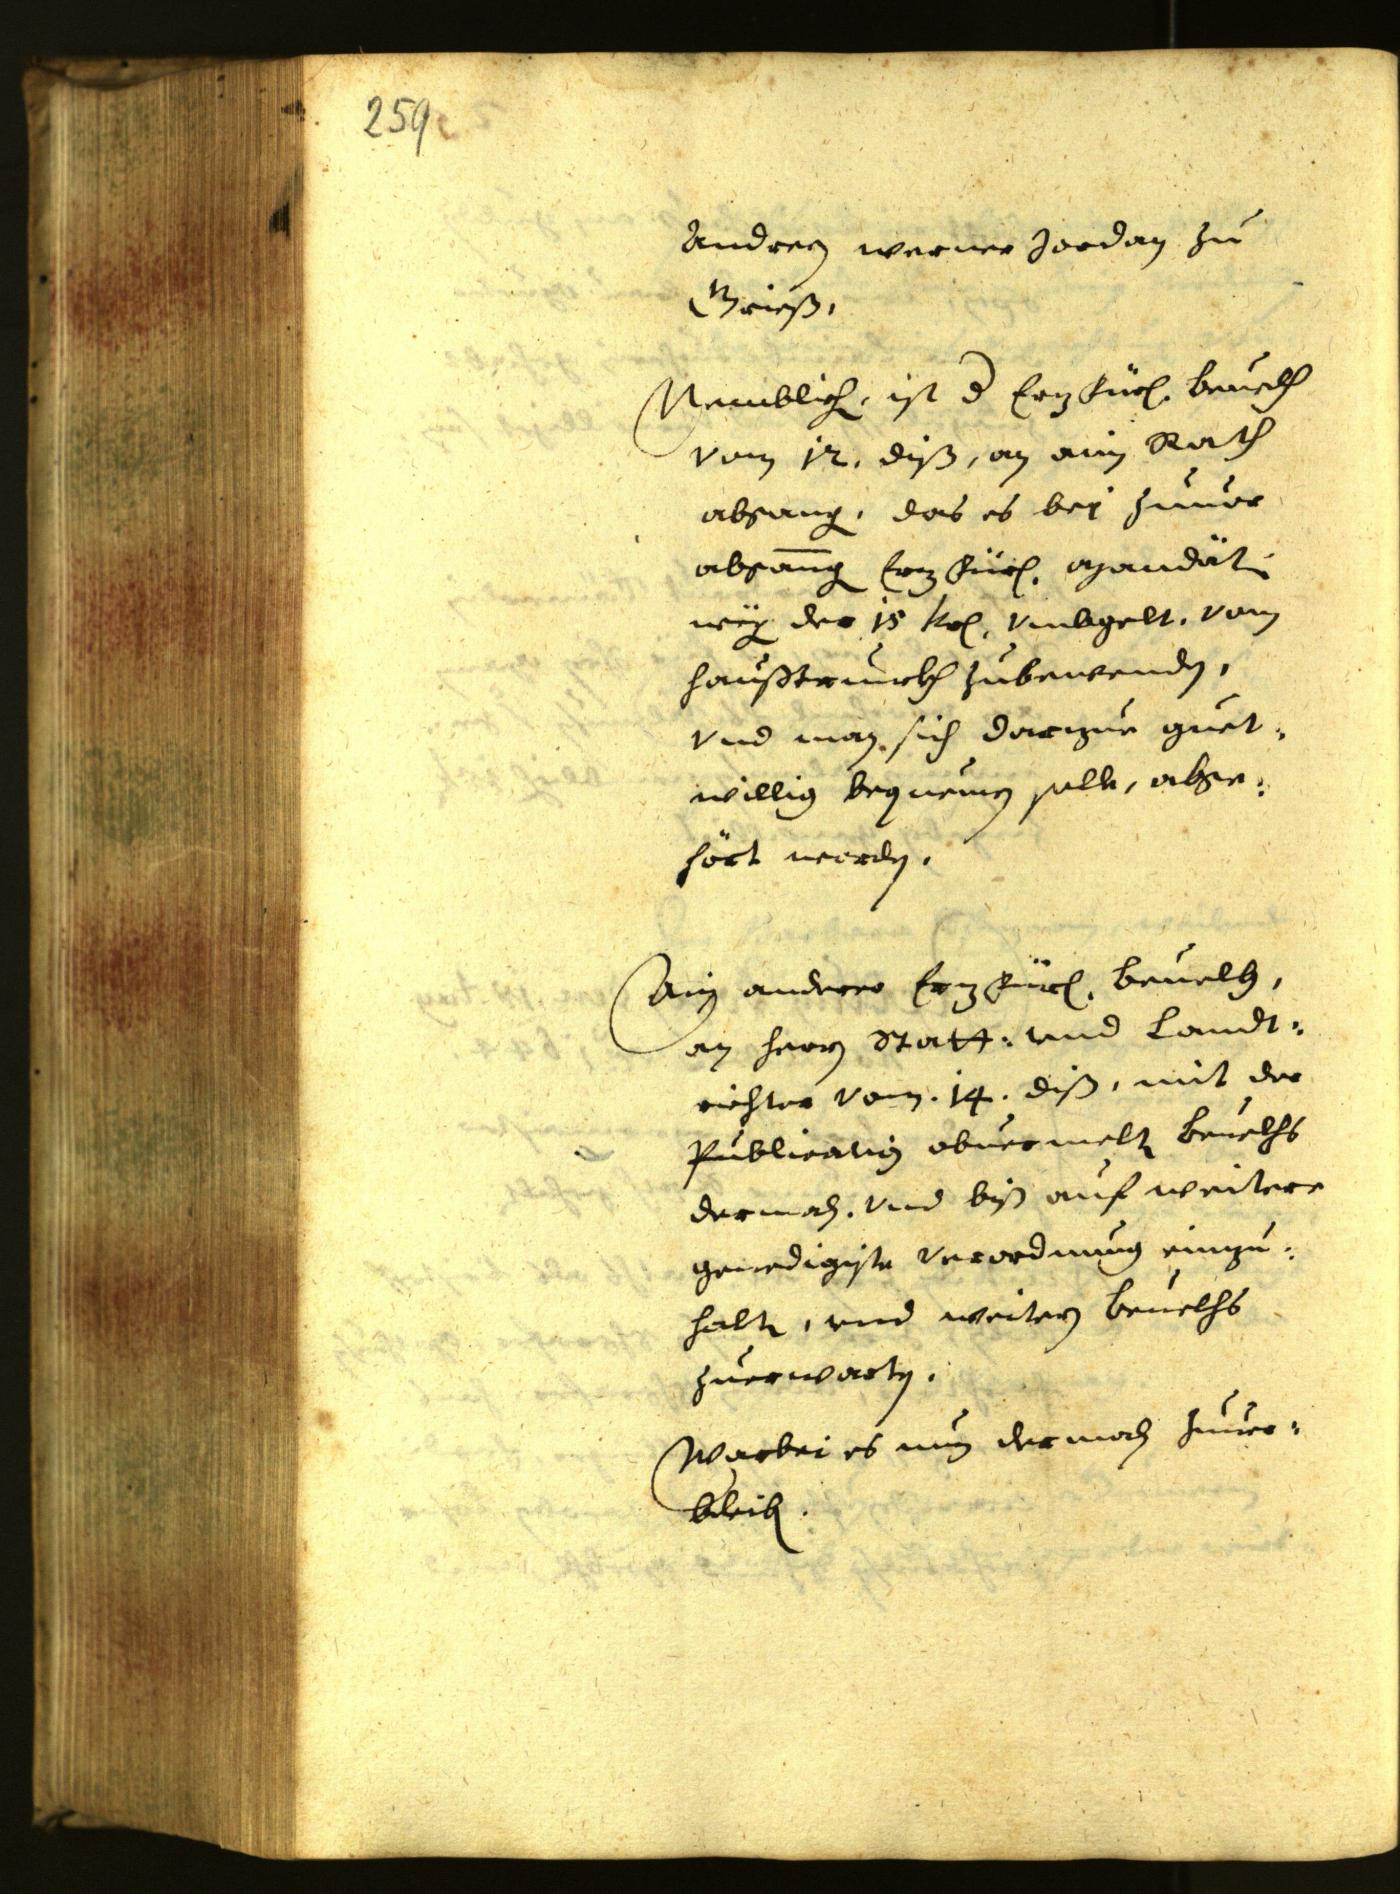 259
Andreen werner Jordan zu
Grieß,
Nemblich, ist d Erzfürl. beuelch
vom 12. diß, an ain Rath
abgang, das es bei zuuor
abgang Erzfürl. Mandät
weg der 15 krl. vmbgelt, vom
haußtrunckh zubewenden,
vnd man sich darzue guet¬
willig bequemen solle, abge¬
hört worden.
Ain anderer Erzfürl. beuelh,
an herrn Statt¬ vnd Landt¬
richter vom .14. diß, mit der
Publication obuermelt beuelchs
dermals, vnd biß auf weitere
genedigiste verordnung einzu¬
halten, vnd weitern beuelchs
zuerwarten.
Warbei es nun dermals zuuer¬
bleiben.